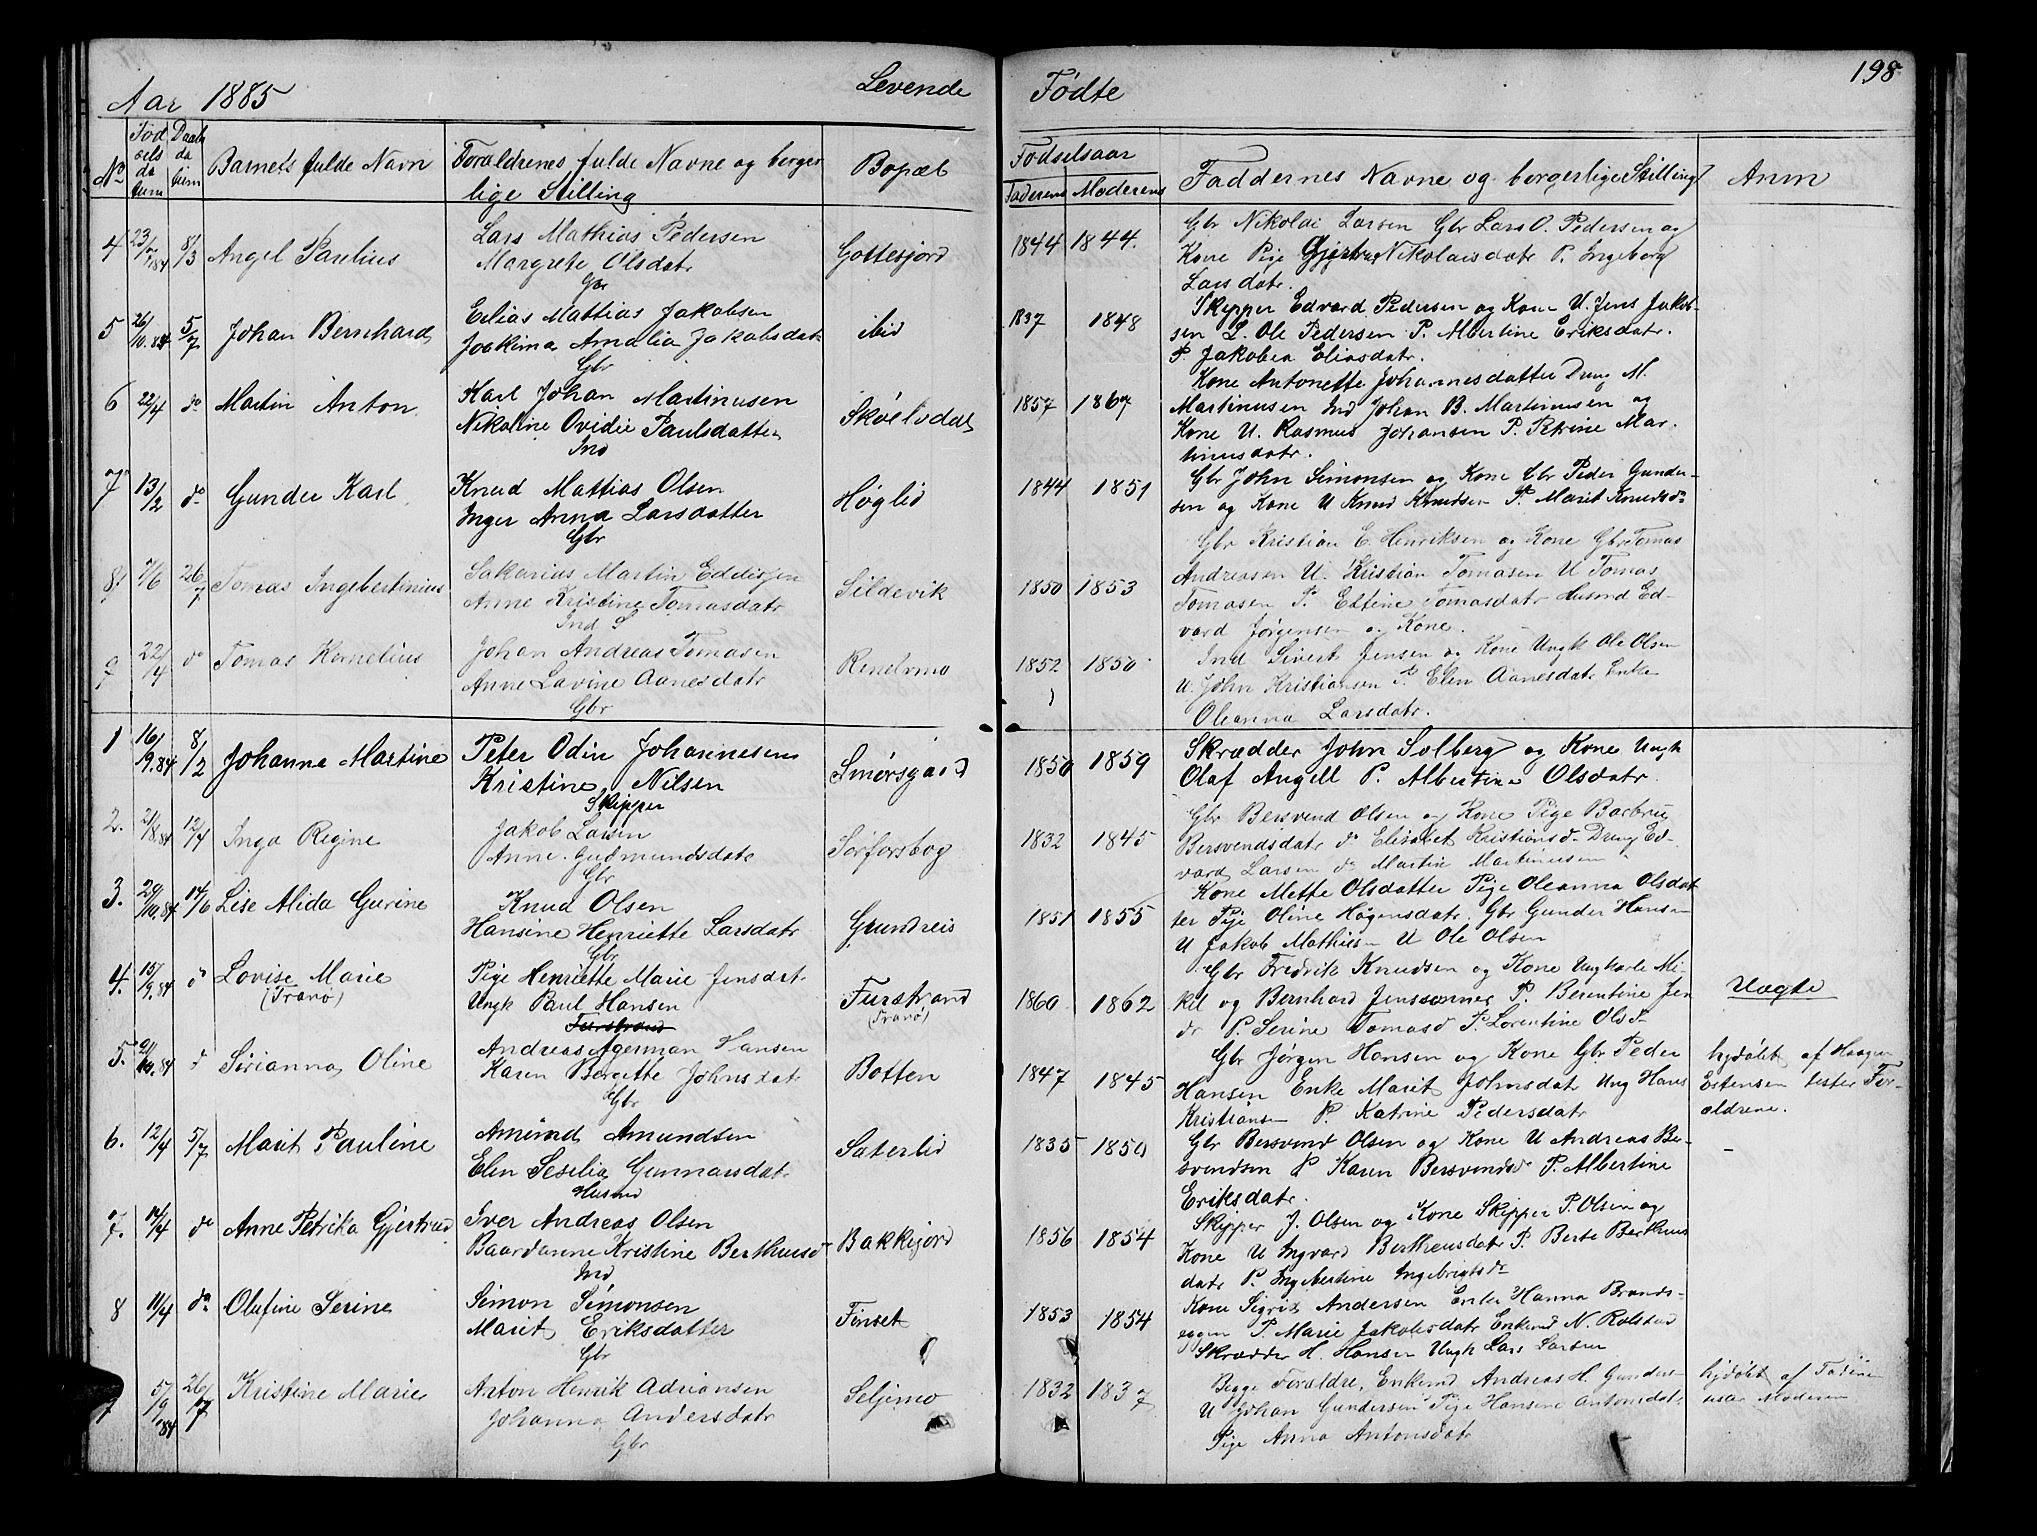 198
Aar 1885 Levende Fødte
No Fødselsdatum Daabdatum Barnets fulde Navn Forældrenes fulde Navne og borgerlige Stilling Bopæl Fødselsaar Faderens Moderens Faddernes Navne og borgerlige Stilling Anm
4 8/3 Angel Paulius
Lars Mathias Pedersen
Margrete Olsdatr
Gbr
Gottesjord
1844 1844.
Gbr Nikolai Larsen Gbr Lars O. Pedersen og
Kone Pige Gjertrud Nikolaisdatr P. Ingeborg
Larsdatr.
5 26/10.84 5/7 Johan Bernhard
Elias Mattias Jakobsen
Joakima Amalia Jakobsdatr
Gbr
ibid
1837 1848
Skipper Edvard Pedersen og Kone U. Jens Jakob-
sen L. Ole Pedersen P. Albertine Eriksdatr.
P. Jakobea Eliasdatr.
6 22/4 do Martin Anton
Karl Johan Martinusen
Nikoline Ovidie Paulsdatter
Ind
Skøelvdal
1857 1867
Kone Antonette Johannesdatter Dreng M.
Martinusen Ind Johan B. Martinusen og
Kone U. Rasmus Johansen P. Petrine Mar-
tinusdatr.
7 13/2 do Gunder Karl
Knud Mattias Olsen
Inger Anna Larsdatter
Gbr
Høglid
1844 1851
Gbr John Simonsen og Kone Gbr Peder Gunder-
sen og Kone U Knud Knudsen P. Marit Knudsdr
8. 7/6 26/7 Tomas Ingebertinius
Sakarias Martin Eddisen
Anne Kristine Tomasdatr
Ind S
Sildevik
1850 1853
Gbr Kristian E. Henriksen og Kone Gbr Tomas
Andreasen U. Kristian Tomasen U Tomas
Tomasen P. Eltine Tomasdatr Husmd Ed-
vard Jørgensen og Kone.
9 22/4 do Tomas Kornelius
Johan Andreas Tomasen
Anne Lavine Aanesdatr
Gbr
Renelvmo
1852 1850
Ind Sivert Jensen og Kone Ungk Ole Olsen
U. John Kristiansen P. Elen Aanesdatr Enke
Oleanna Larsdatr.
1 16/9.84 8/2 Johanna Martine
Peter Odin Johannesen
Kristine Nilsen
Skipper
Smørsgaard
1850 1859
Skrædder John Solberg og Kone Ungk
Olaf Angell P. Albertine Olsdatr.
2. 21/8.84 12/4 Inga Regine
Jakob Larsen
Anne Gudmundsdatr
Gbr
Sørforsbog
1832 1845
Gbr Bersvend Olsen og Kone Pige Barbru
Bersvendsdatr do Elisabet Kristiansd. Dreng Ed-
vard Larsen do Martin Martinusen
3. 29/10.84 14/6 Lise Alida Gurine
Knud Olsen
Hansine Henriette Larsdatr
Gbr
Grundreis
1851 1855
Kone Mette Olsdatter Pige Oleanna Olsdat-
ter Pige Oline Høgensdatr. Gbr Gunder Hansen
U Jakob Mathisen U Ole Olsen
4. 15/9.84 do Lovise Marie
(Tranø)
Pige Henriette Marie Jensdatr
Ungk Paul Hansen
Furstrand
Furstrand
(Tranø)
1860 1862
Gbr Fredrik Knudsen og Kone Ungkarle Mi-
kel og Bernhard Jenssønner P. Berentine Jen
dr P. Serine Tomasd P. Lorentine Olsdr
Uægte
5. do Sirianna Oline
Andreas Agerman Hansen
Karen Bergitte Johnsdatr
Gbr
Botten
1847 1845
Gbr Jørgen Hansen og Kone Gbr Peder
Hansen Enke Marit Johnsdatr Ung Hans
Kristiansen P. Katrine Pedersdatr
hjdøbt af Haagen
Estensen tester For-
ældrene.
6. 12/4 5/7 Marit Pauline
Amund Amundsen
Elen Sesilia Gunnarsdatr
Husmd
Sæterlid
1835 1850
Gbr Bersvend Olsen og Kone U Andreas Be-
svendsen P Karen Bersvendsd P. Albertine
Eriksdatr.
7. 14/4 do Anne Petrika Gjertrud
Iver Andreas Olsen
Baardanne Kristine Bertheusdr
Ind
Bakkejord
1856 1854
Skipper J. Olsen og Kone Skipper P. Olsen og
Kone U Ingvard Bertheusdatr P. Berte Bertheus
datr P. Ingebertine Ingebrigtsdr
8 11/4 do Olufine Serine
Simon Simonsen
Marit Eriksdatter
Gbr
Finset
1853 1854
Kone Sigrid Andersen Enke Hanna Brands-
eggen P. Marie Jakobsdatr Enkemd N. Rolstad
Skrædder H. Hansen Ungk Lars Larsen
9 5/9 84 26/7 Kristine Marie
Anton Henrik Adriansen
Johanna Andersdatr
Gbr
Seljemo
1832 1837
Begge Forældre, Enkemd Andreas H. Gunders
U Johan Gundersen Pige Hansine Antonsdatr
Pige Anna Antonsdatr
hjdøbt af Faderen
testar Moderen